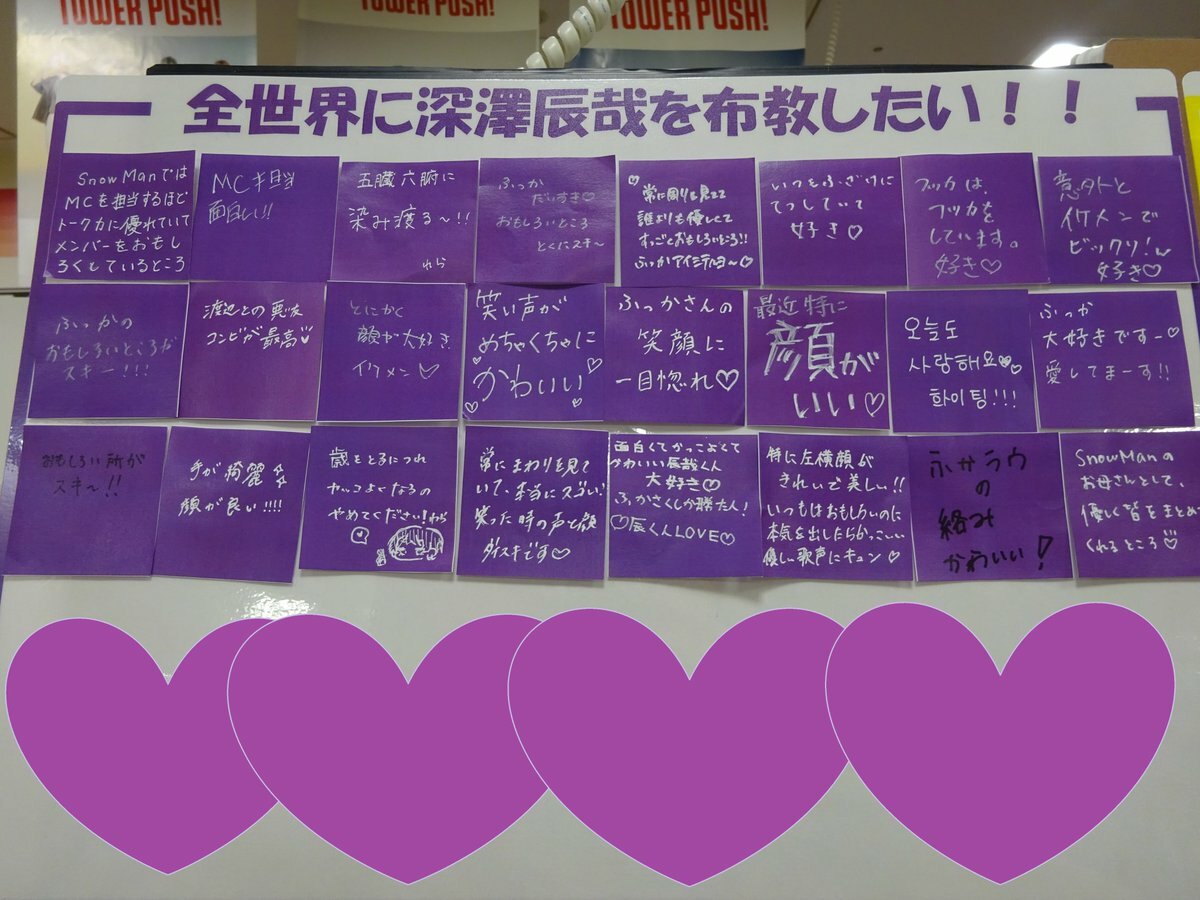 TOWER PUSH!
TOWER PUSH!
TOWER PUSH!
全世界に深澤辰哉を布教したい！！
SnowManでは
MCを担当するほど
トーク力に優れていて
メンバーをおもし
ろくしているところ
MC担当
面白い!!
五臓六腑に
染み渡る〜!!
れら
ふっか
だいすき♡
おもしろいところ
とくにスキ〜
♡常に周りを見てて
誰よりも優しくて
すっごくおもしろいところ!!
ふっかアイシテルヨ〜♡
いつもふざけに
てっしていて
好き♡
フッカは、
フッカを
しています。
好き♡
意外と
イケメンで
ビックリ!
好き♡
ふっかの
おもしろいところが
スキー!!!
渡辺との悪友
コンビが最高♡
とにかく
顔が大好き
イケメン♡
笑い声が
めちゃくちゃに
かわいい
ふっかさんの
笑顔に
一目惚れ♡
最近特に
顔が
いい♡
오늘도
사랑해요♡♡
화이팅!!!
ふっか
大好きですー♡
愛してまーす!!
おもしろい所が
スキ〜!!
手が綺麗
顔が良い!!!!
歳をとるにつれ
カッコよくなるの
やめてください!わら
常にまわりを見て
いて、本当にスゴい!
笑った時の声と顔
ダイスキです♡
面白くてかっこよくて
かわいい辰哉くん
大好き♡
ふっかさくしか勝たん!
♡辰くんLOVE♡
特に左横顔が
きれいで美しい!!
いつもはおもしろいのに
本気を出したらかっこいい
優しい歌声にキュン♡
ふサラウ
の
絡み
かわいい!
SnowManの
お母さんとして、
優しく皆をまとめ
くれるところ♡